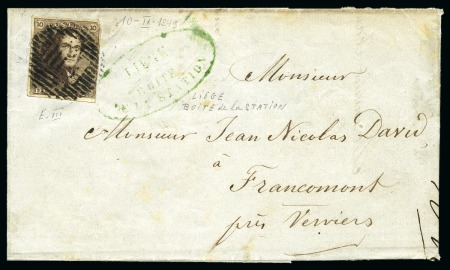 10-II-1849
10 10
LIÉGE
BOITE
DE LA STATION
E.III
LIÉGE
BOITE de la STATION
Monsieur
Monsieur Jean Nicolas David
à
Francomont
près Verviers